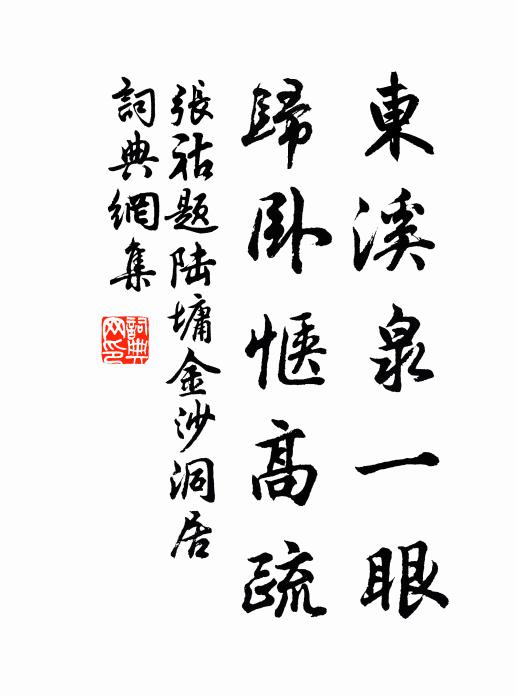 東溪泉一眼
歸卧惬高疏
張祜题陆墉金沙洞居
詞典網集
詞典
网印